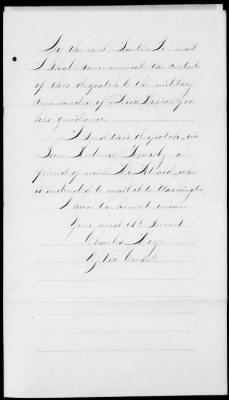 To the next Santa Fe mail
I shall communicate the contents
of this despatch to the military
commander of New Mexico for
his guidance.
I send this despatch, via
San Antonio Texas by a
friend of mine Mr
who
is instructed to mail it to Washington
I have the honor to remain
Your most Obt Servant
Charles